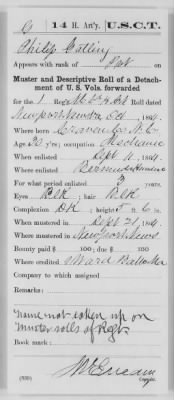 C | 14 H. Art'y. | U.S.C.T.
Philip
Appears with rank of Pvt
Muster and Descriptive Roll of a Detachment of U. S. Vols. forwarded
for the Roll dated
Newport News Va Oct , 1864.
Where born Craven Co. N.C.
Age y'rs; occupation Mechanic
When enlisted Sept , 1864.
Where enlisted Bermuda Hundred
For what period enlisted 3 years.
Eyes Blk ; hair Blk
Complexion Dk ; height 5 ft. 6 in.
When mustered in Sept 21 , 1864.
Where mustered in Newport News
Bounty paid $ 100 ; due $ 100
Where credited Ward
Company to which assigned
Remarks:
Name not taken up on
Muster rolls of Regt.
Book mark:
(339) Copyist.